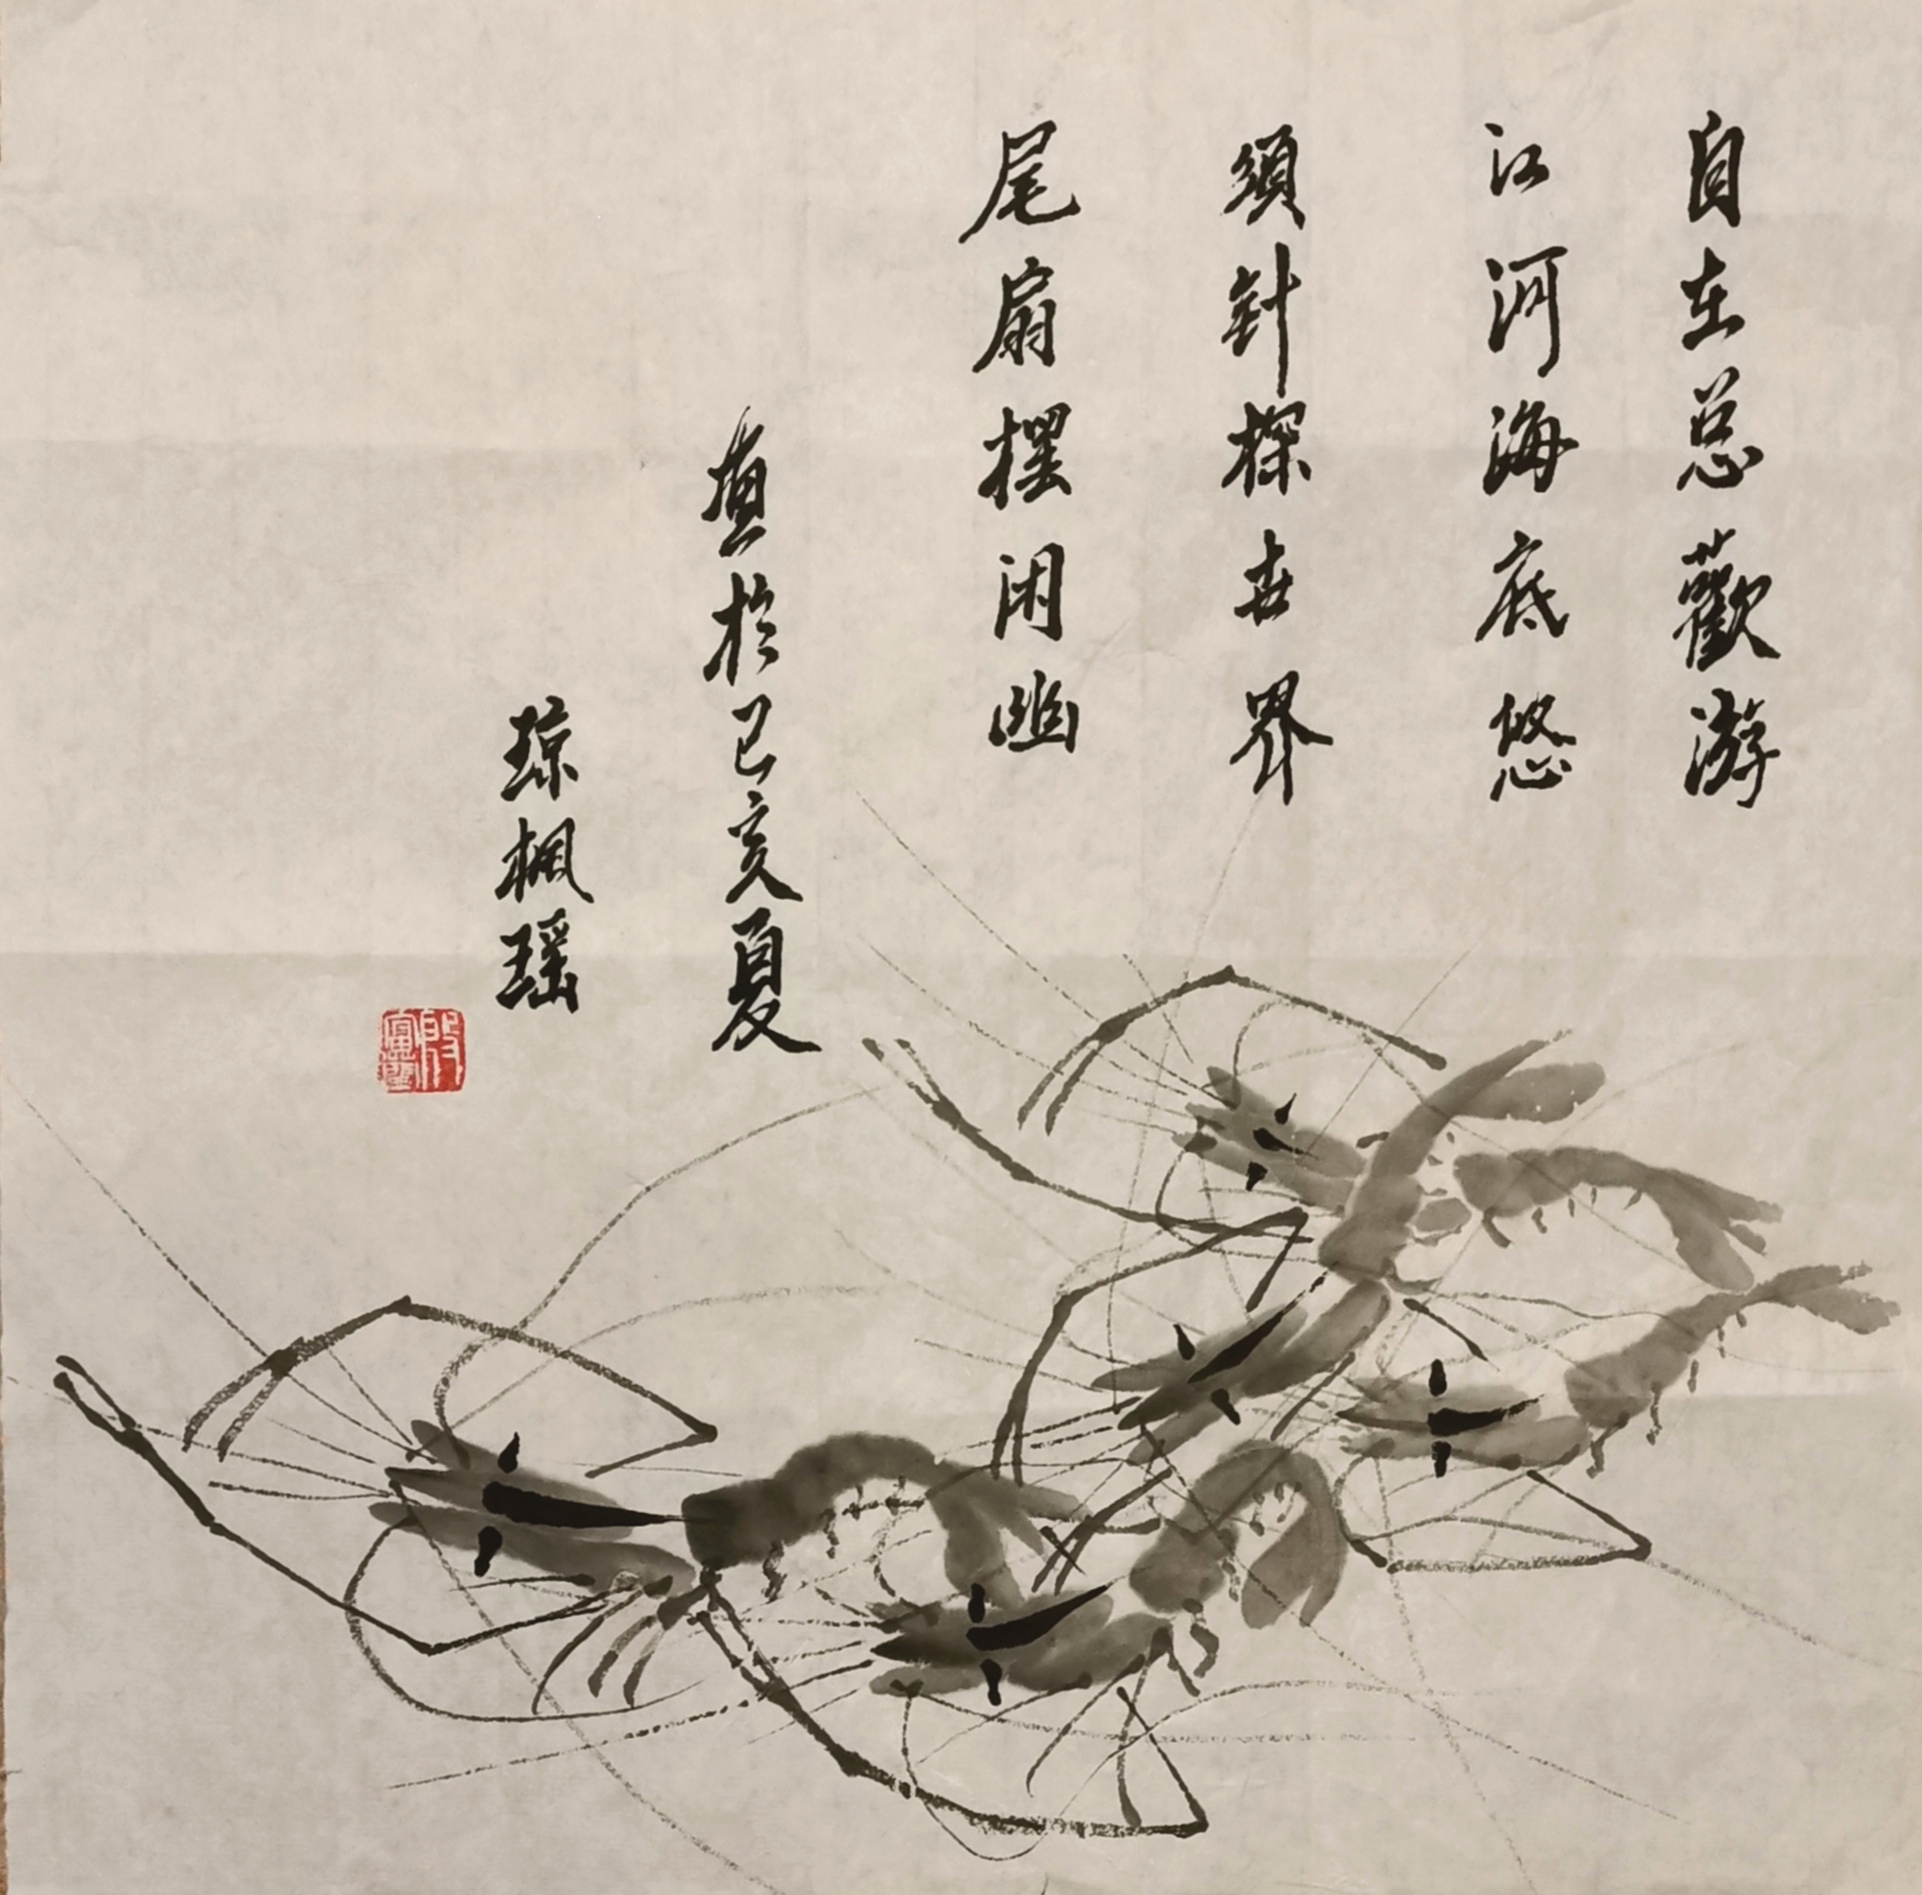 自在总歡游
江河海底悠
須針探世界
尾扇摆闲幽
於己亥夏
琼楓瑶